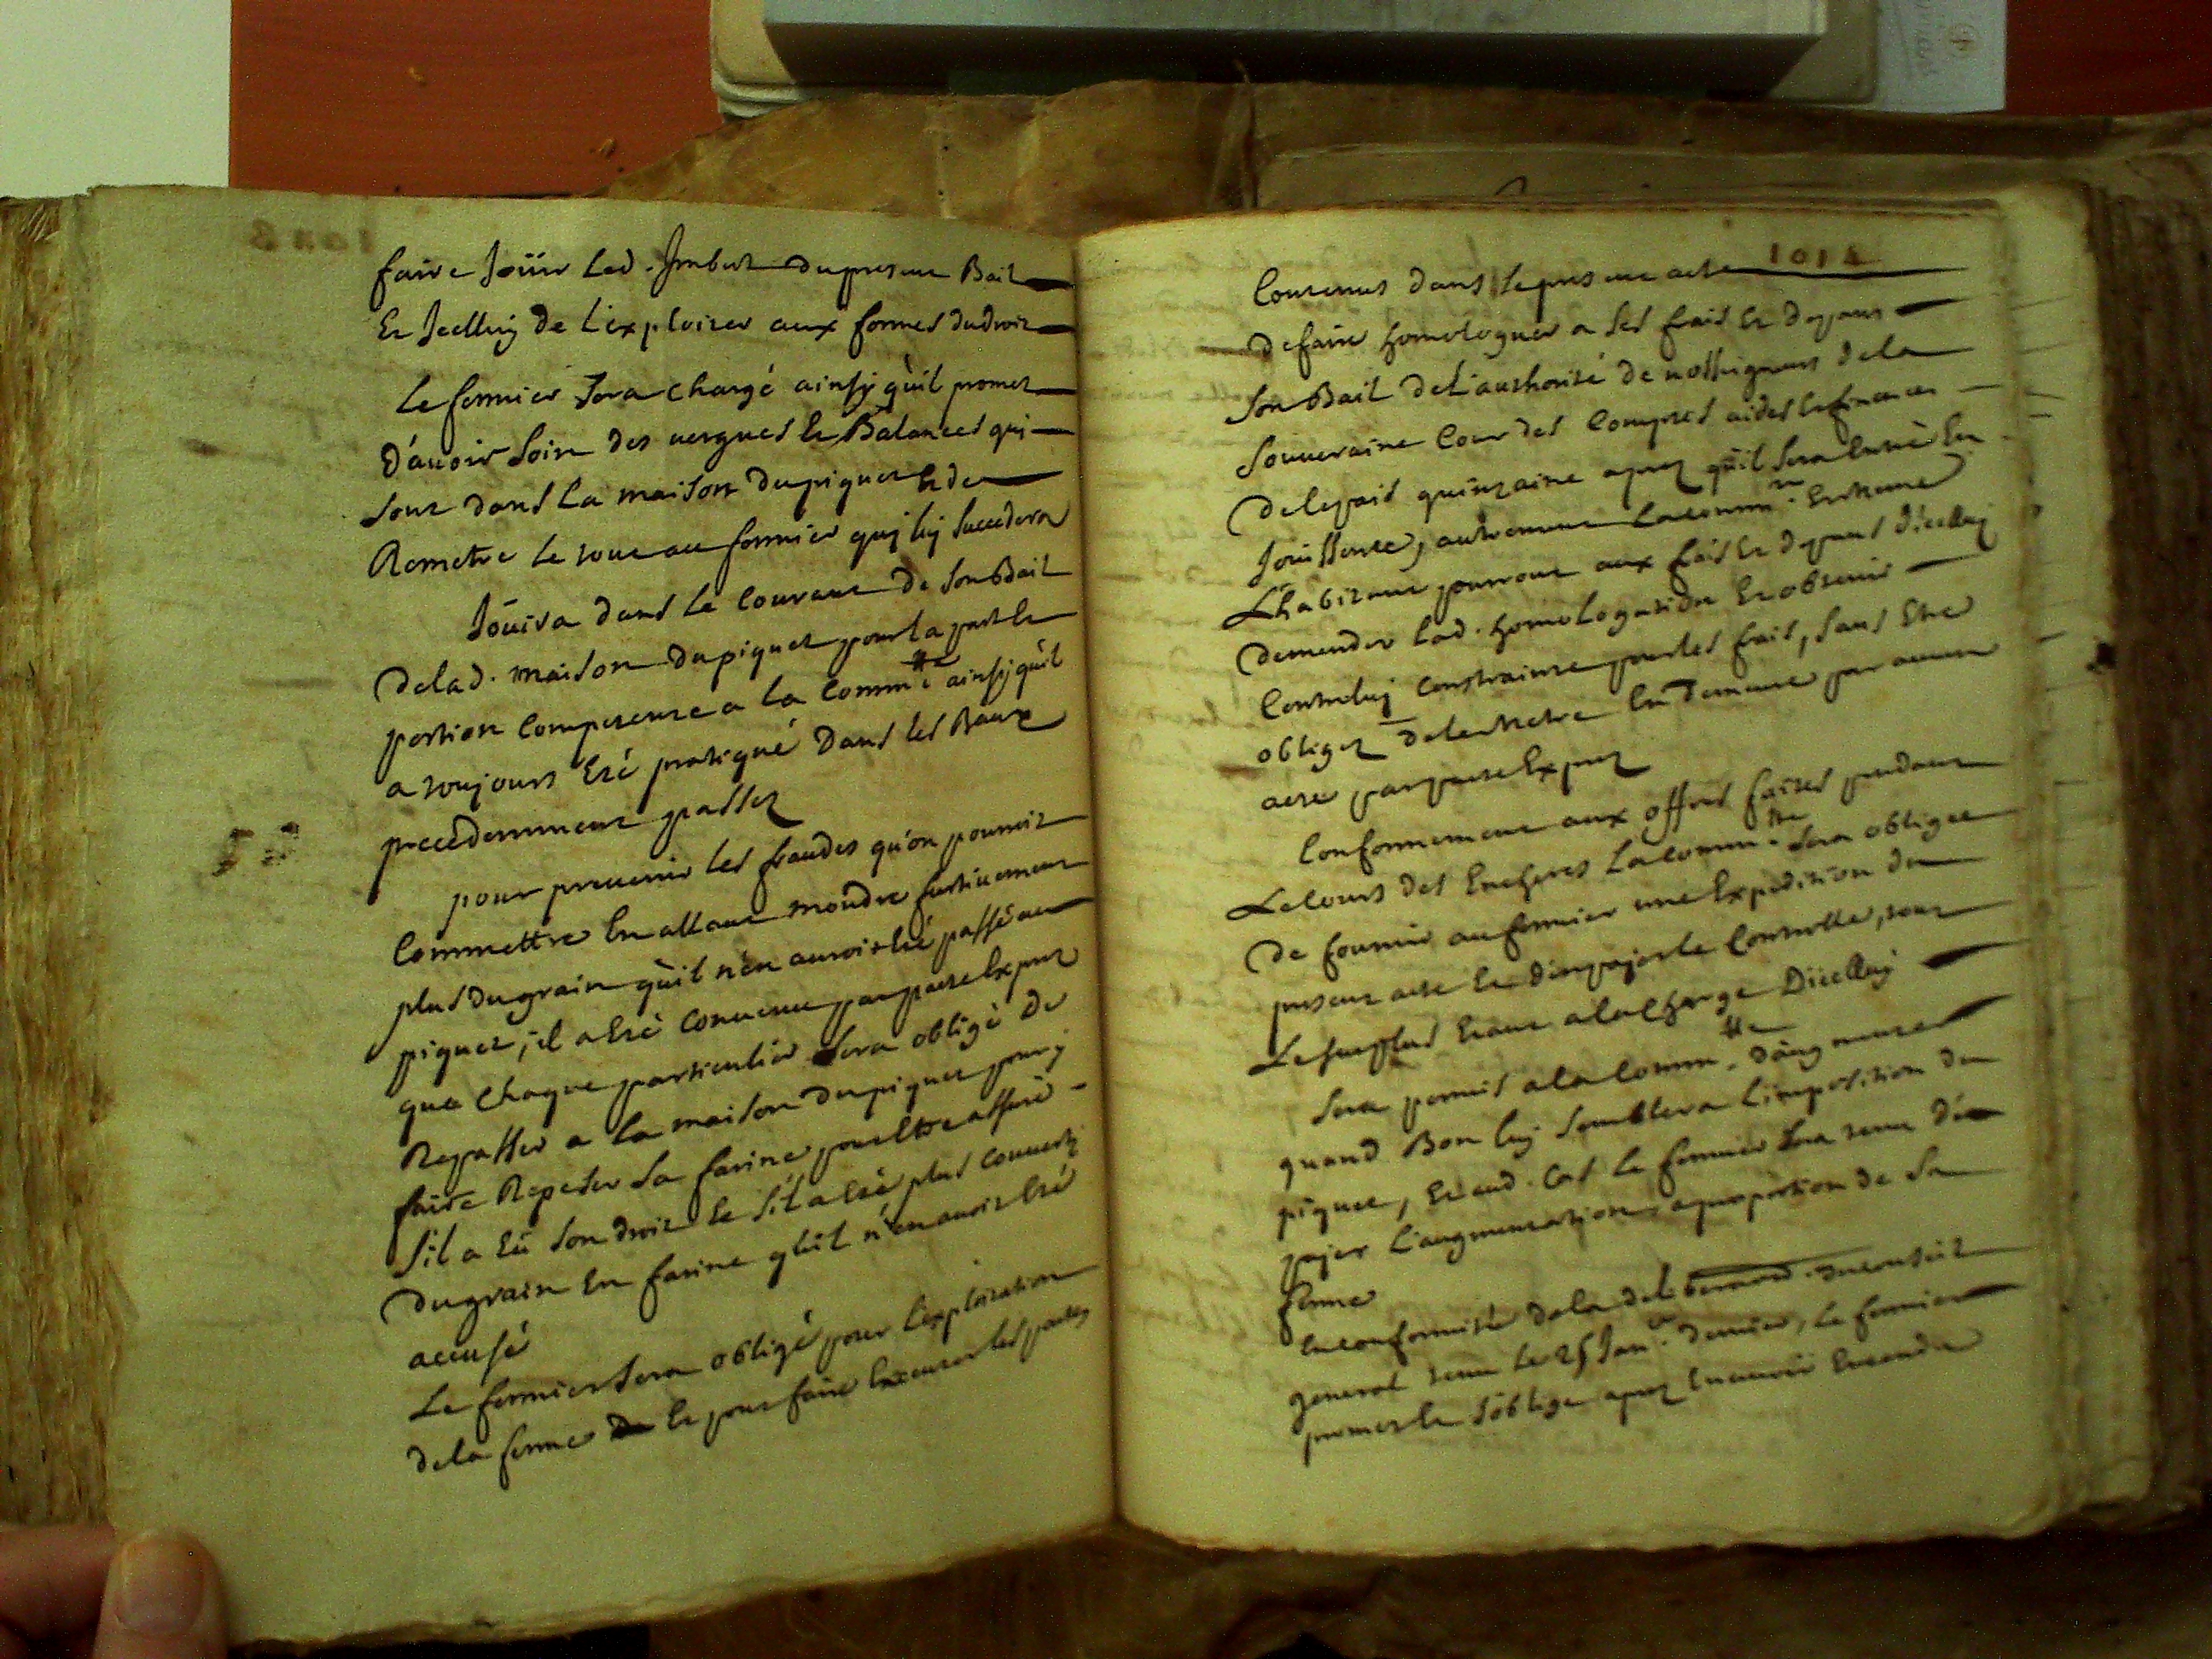 faire Joüir Led. Imbert du present Bail
Et Icelluy de L'exploiter aux formes du droit
Le fermier Sera chargé ainsy qu'il promet
D'avoir Soin des vergues Et Balances qui
Sont dans La maison du piquet Et de
Remetre le tout au fermier quj luj Succedera
Joüira dans Le Courant de Son Bail
De lad. maison du piquet pour la part Et
portion Competente a la Commté ainsy qu'il
a toujours Eté pratiqué Dans Les Baux
precedemment passez
pour prevenir Les fraudes qu'on pourroit
Commettre En allant moudre furtivement
plus Du grain qu'il n'en auroit Eté passé au
piquet, il a Eté Convenu par pacte Exprez
que Chaque particulier Sera obligé De
Repasser a La maison du piquet pour y
faire Repeser Sa farine pour Etre assuré
S'il a Eü Son droit Et S'il a Eté plus Converty
Du grain En farine qu'il n'en avoit Eté
accusé
Le fermier Sera obligé pour L'exploitation
De la ferme Et pour faire Executer les pactes
1014
Contenus dans Le present acte
De faire homologuer a Ses frais Et depans
Son Bail de L'authorité de nosseigneurs de la
Souveraine Cour des Comptes aides Et finances
De Ce pais quinzaine aprez qu'il Sera Entré En
Jouissance, autrement La Commté Et
L'habitant pourront aux frais Et depans d'icelluy
Demander Lad. homologation Et obtenir
Contre luj Contrainte pour les frais, Sans Etre
obligez De le metre En Demeure par aucun
acte par pacte Exprez
Conformement aux offres faites pendant
Le Cours des Encheres La Commté Sera obligée
De fournir au fermier une Expedition du
present acte Et d'en payer le Controlle, tout
Le Surplus Etant a la Charge D'icelluy
Sera permis a la Commté D'augmenter
quand Bon luj Semblera L'imposition du
piquet, Et aud. Cas Le fermier Sera tenu d'en
payer L'augmentation a proportion de Sa
ferme
En conformité de la deliberaõn du conseil
general tenu Le 25 Janer Dernier, Le fermier
promet Et S'oblige aprez En avoir Entendu